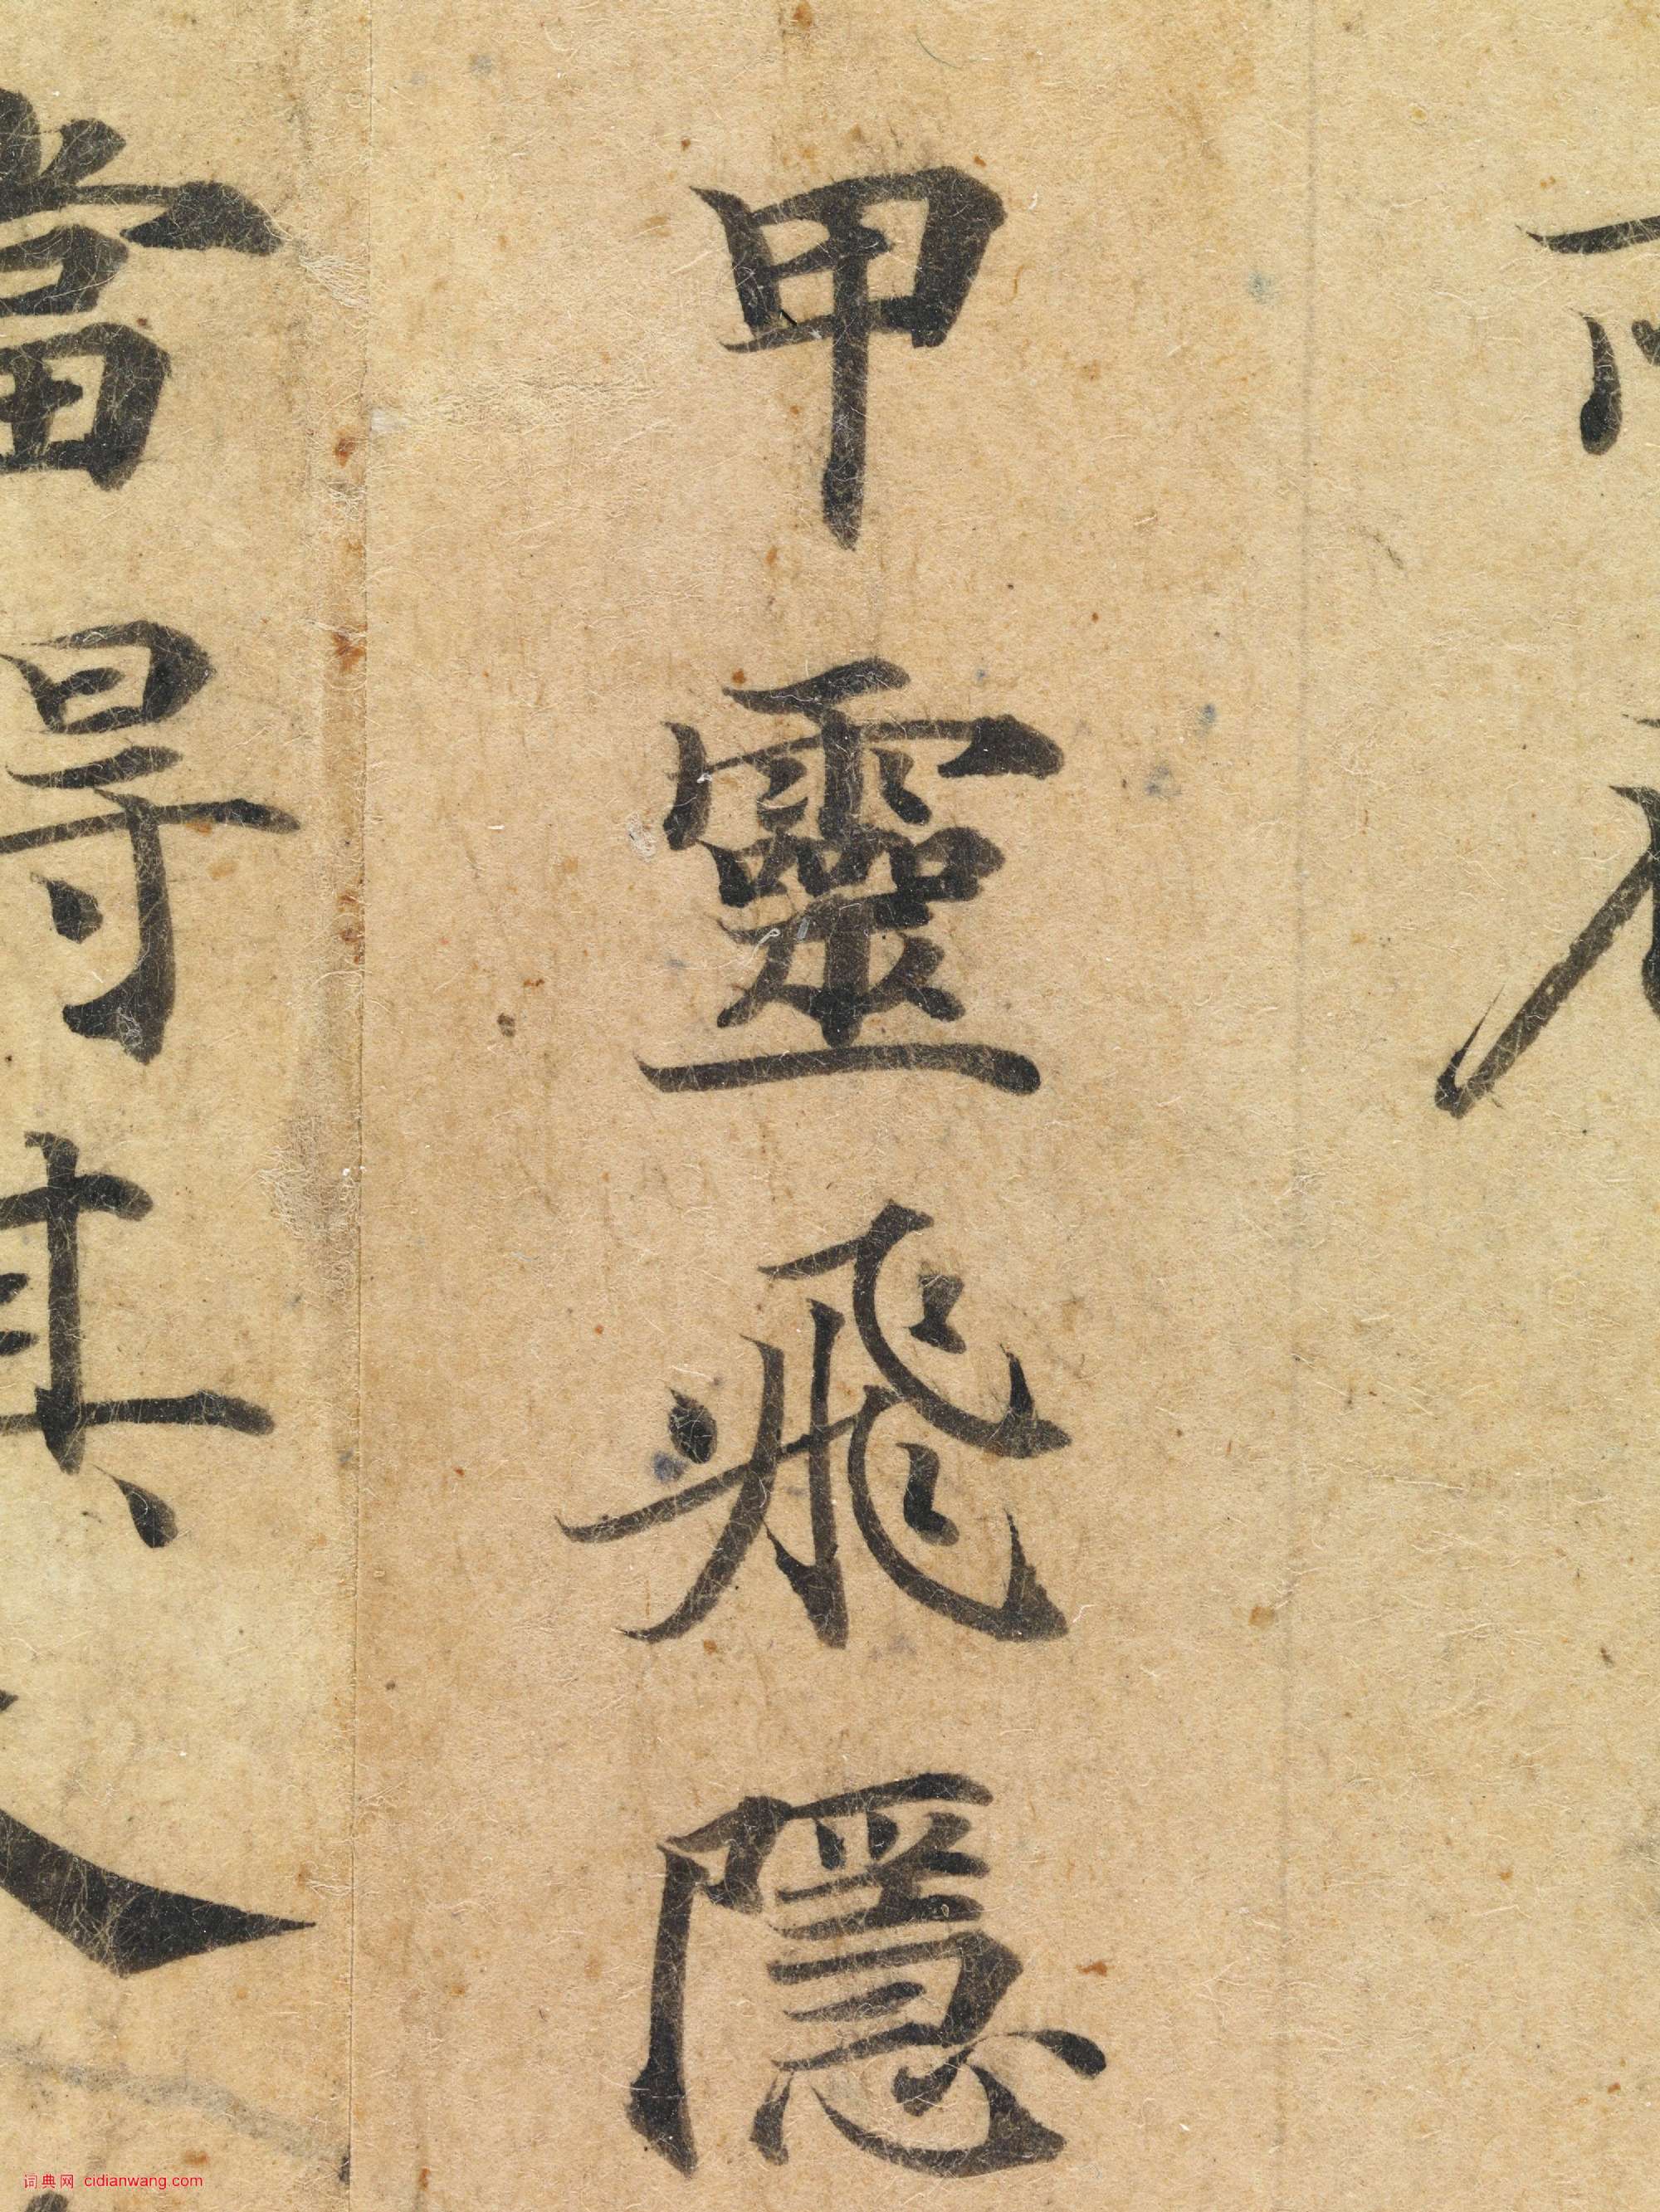 甲靈飛隱
當得其
词典网 cidianwang.com